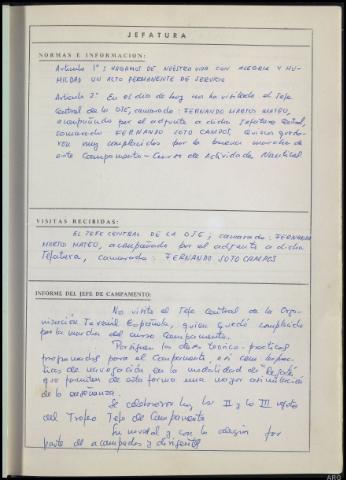 JEFATURA
NORMAS E INFORMACION:
Artículo 1º: HAGAMOS DE NUESTRA VIDA CON ALEGRIA Y HU-
MILDAD UN ALTO PERMANENTE DE SERVICIO
Artículo 2º En el dia de hoy nos ha visitado el Jefe
Central de la OJE, camarada: FERNANDO MARTOS MATEU,
acompañado por el adjunto a dicha Jefatura Central,
camarada FERNANDO SOTO CAMPOS, quienes queda-
ron muy complacidos por la buena marcha de
este Campamento - Curso de Actividades Nauticas
VISITAS RECIBIDAS:
EL JEFE CENTRAL DE LA OJE, camarada: FERNANDO
MARTOS MATEU, acompañado por el adjunto a dicha
Jefatura, camarada: FERNANDO SOTO CAMPOS
INFORME DEL JEFE DE CAMPAMENTO:
Nos visita el Jefe Central de la Orga-
nización Juvenil Española, quien quedó complacido
por la marcha del curso Campamento.
Prosiguen las clases teorico-practicas
programadas para el Campamento, asi como las prac-
ticas de navegación en la modalidad de "Regata"
que permiten de esta forma una mejor asimilación
de la enseñanza.
Se celebraron hoy las II y la III regata
del Trofeo Jefe de Campamento
moral y con la alegria por
parte de acampados y dirigentes
ARG